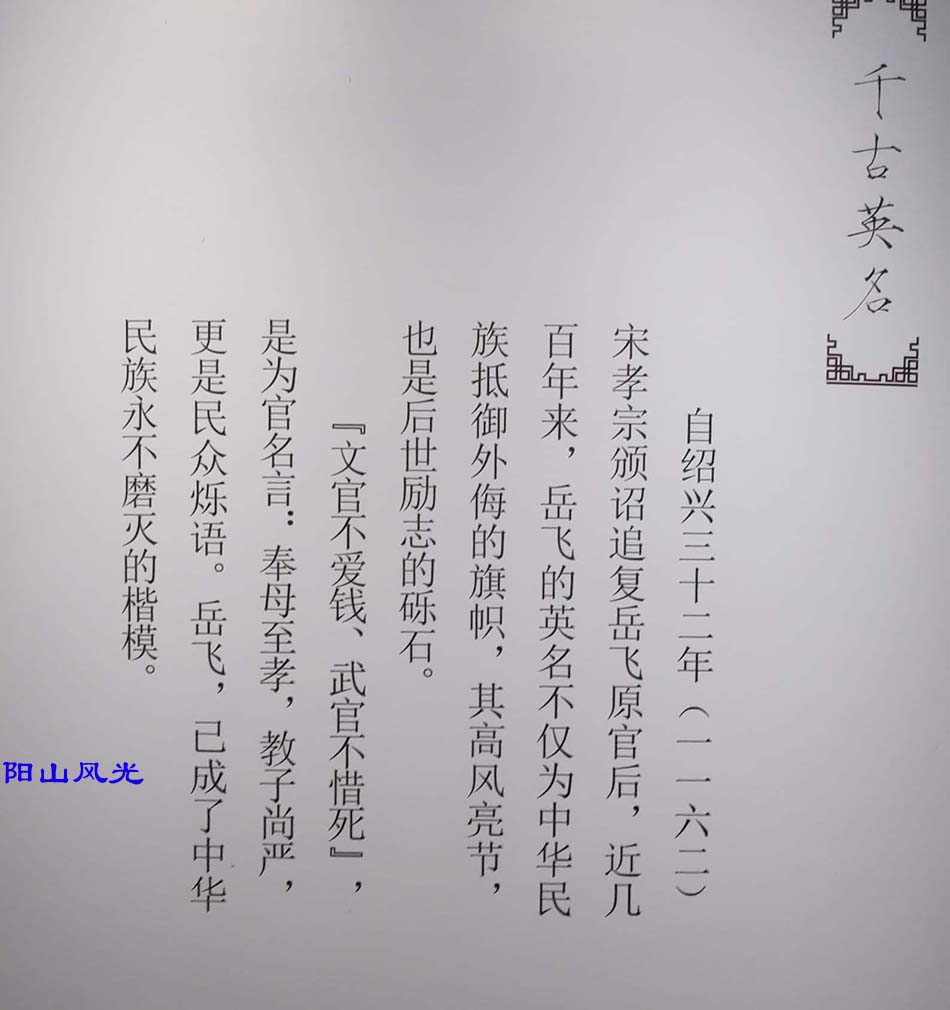 千古英名
自绍兴三十二年（一一六二）
宋孝宗颁诏追复岳飞原官后，近几
百年来，岳飞的英名不仅为中华民
族抵御外侮的旗帜，其高风亮节，
也是后世励志的砾石。
『文官不爱钱、武官不惜死』，
是为官名言：奉母至孝，教子尚严，
更是民众烁语。岳飞，已成了中华
民族永不磨灭的楷模。
阳山风光